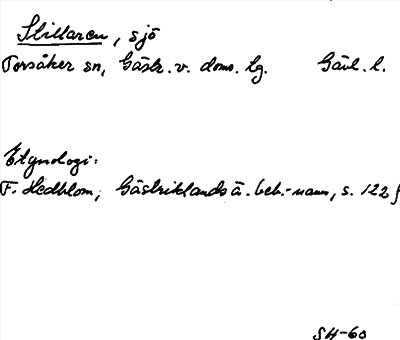 Stillaren, sjö
Torsåker sn, Gästr. v. doms. lg. Gävl. l.
Etymologi:
F. Hedblom, Gästriklands ä. beb.-namn, s. 122 f
SH-60